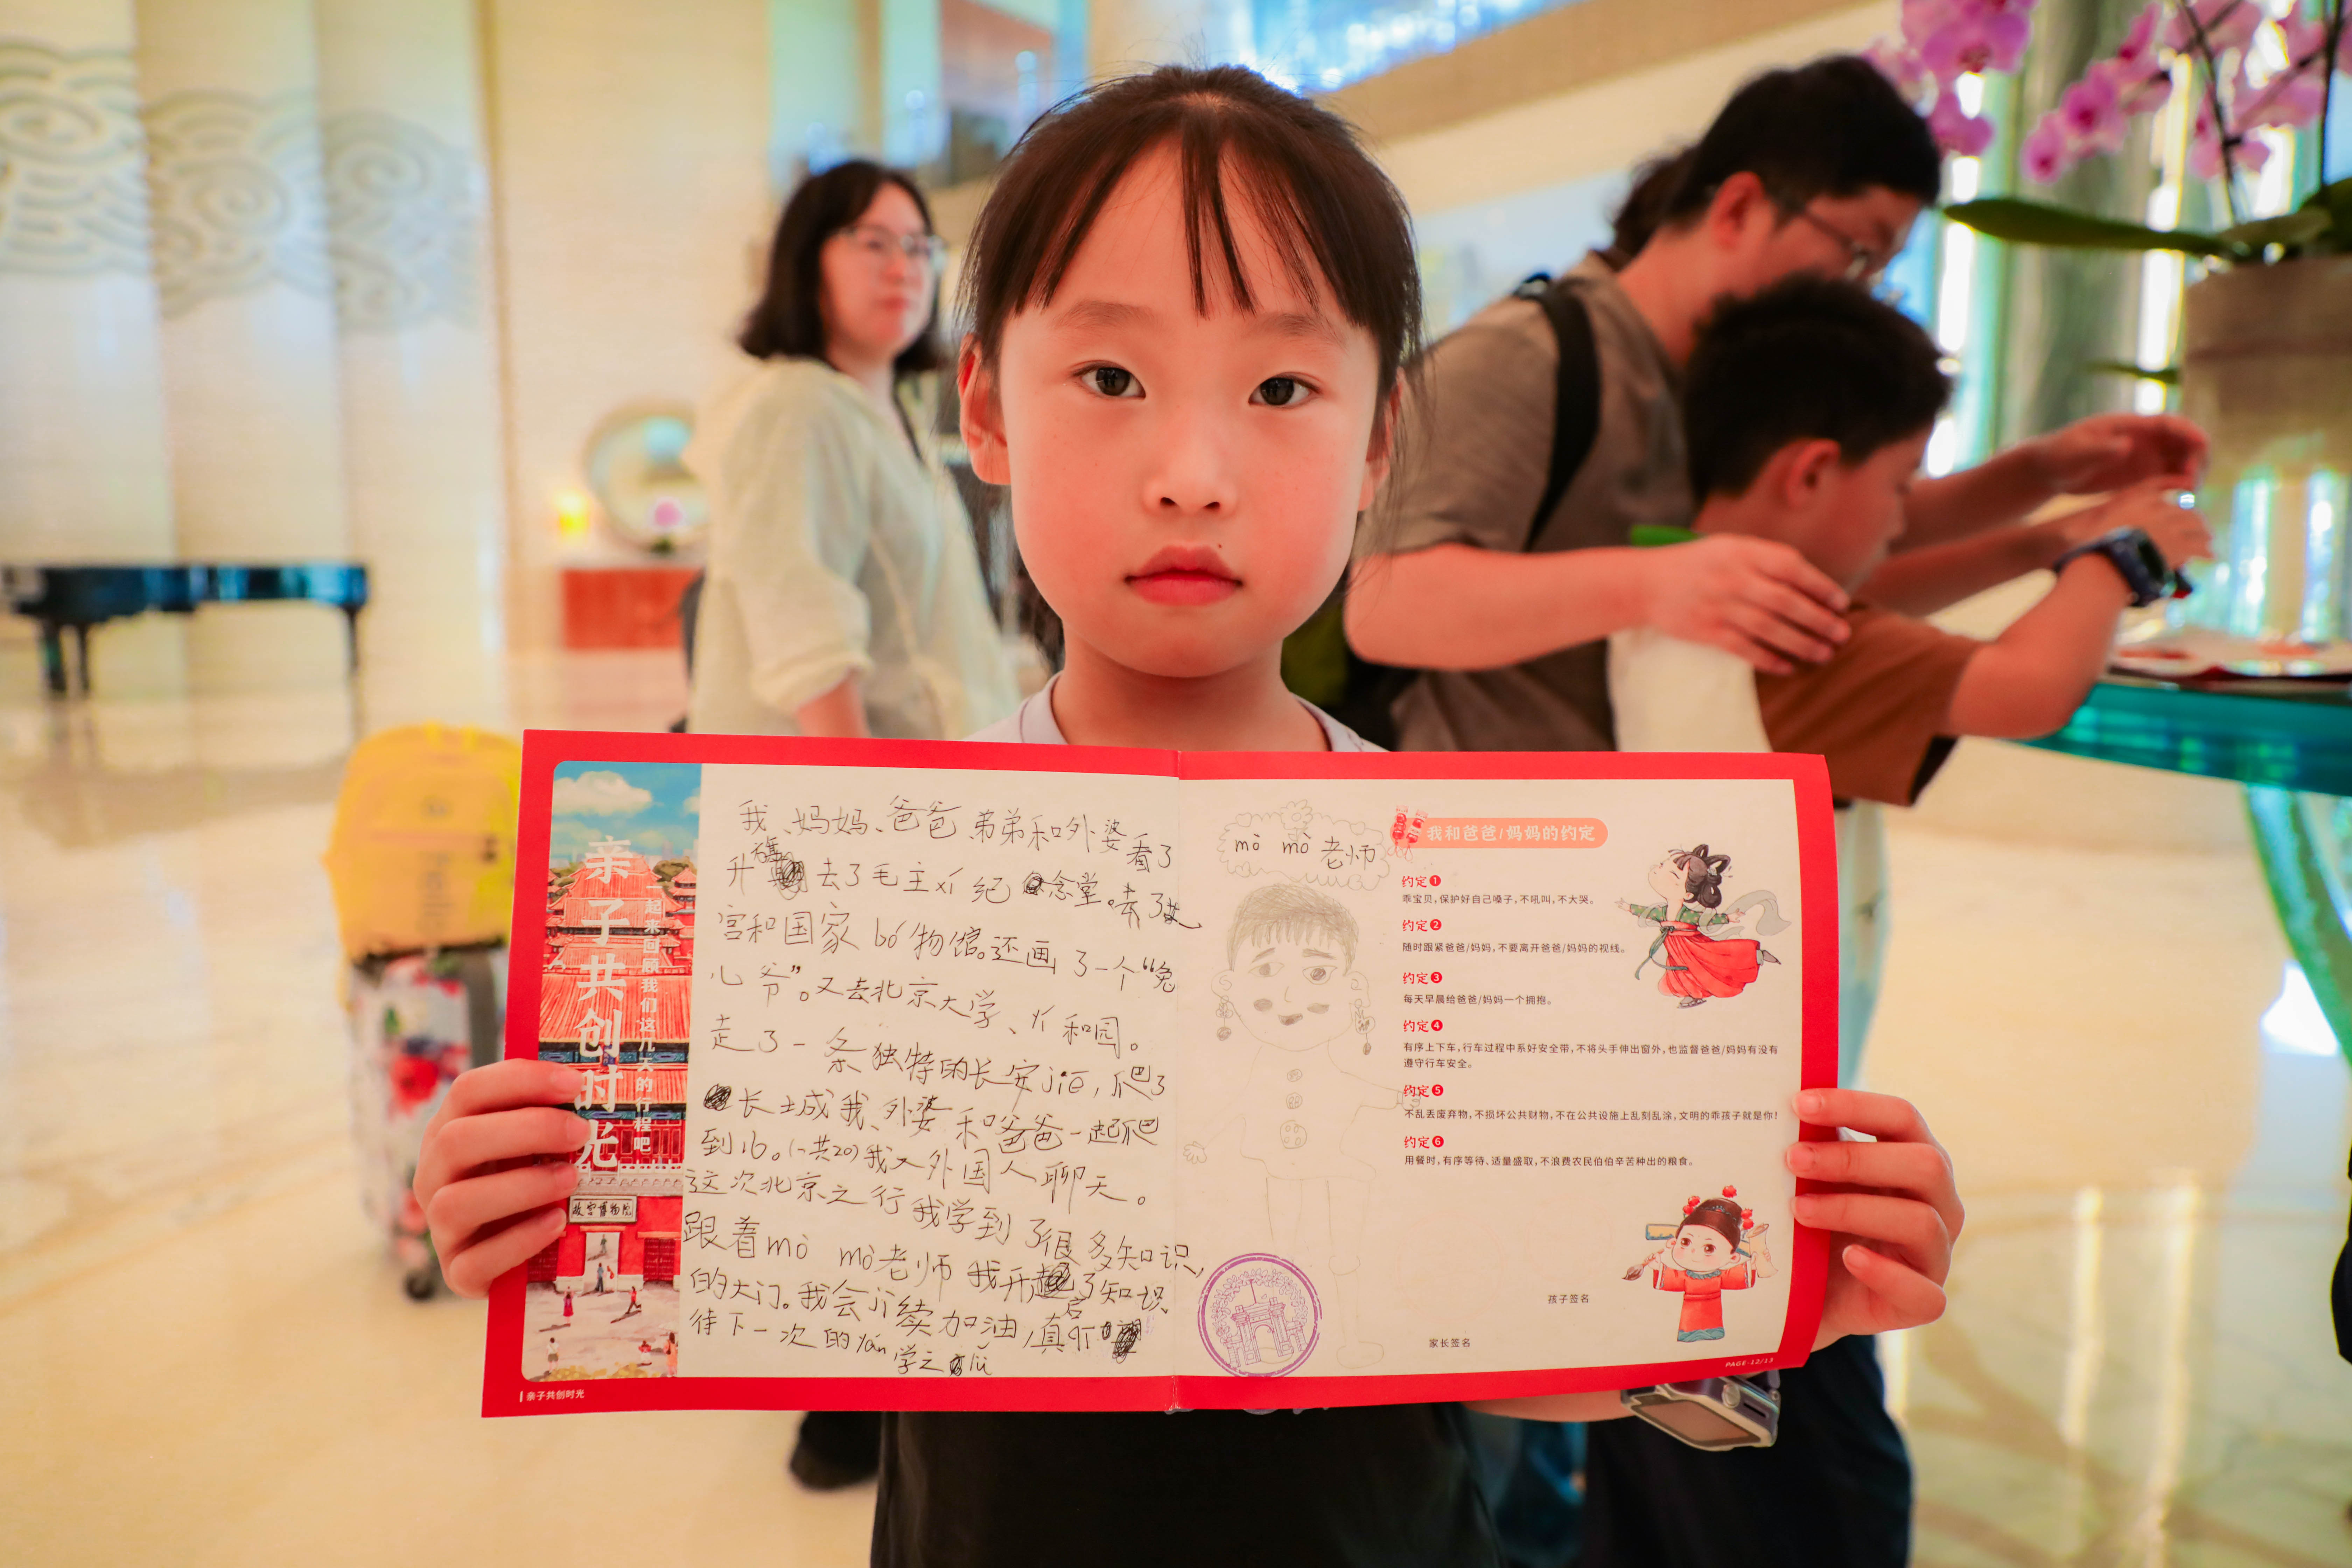 亲子共创时光
一起来回顾我们这几天的行程吧
故宫博物院
我、妈妈、爸爸、弟弟和外婆看了
升旗去了毛主xí纪念堂。去了故
宫和国家bó物馆。还画了一个“兔
儿爷”。又去北京大学、yí和园。
走了一条独特的长安jiē，爬了
长城我、外婆和爸爸一起爬
到16。(一共20)我又外国人聊天。
这次北京之行我学到了很多知识，
跟着mò mò老师我开启了知识
的大门。我会jì续加油，真
待下一次的yán学之lǚ
亲子共创时光
mò mò老师
我和爸爸/妈妈的约定
约定1
乖宝贝，保护好自己嗓子，不吼叫，不大哭。
约定2
随时跟紧爸爸/妈妈，不要离开爸爸/妈妈的视线。
约定3
每天早晨给爸爸/妈妈一个拥抱。
约定4
有序上下车，行车过程中系好安全带，不将头手伸出窗外，也监督爸爸/妈妈有没有
遵守行车安全。
约定5
不乱丢废弃物，不损坏公共财物，不在公共设施上乱刻乱涂，文明的乖孩子就是你！
约定6
用餐时，有序等待、适量盛取，不浪费农民伯伯辛苦种出的粮食。
孩子签名
家长签名
PAGE-12/13